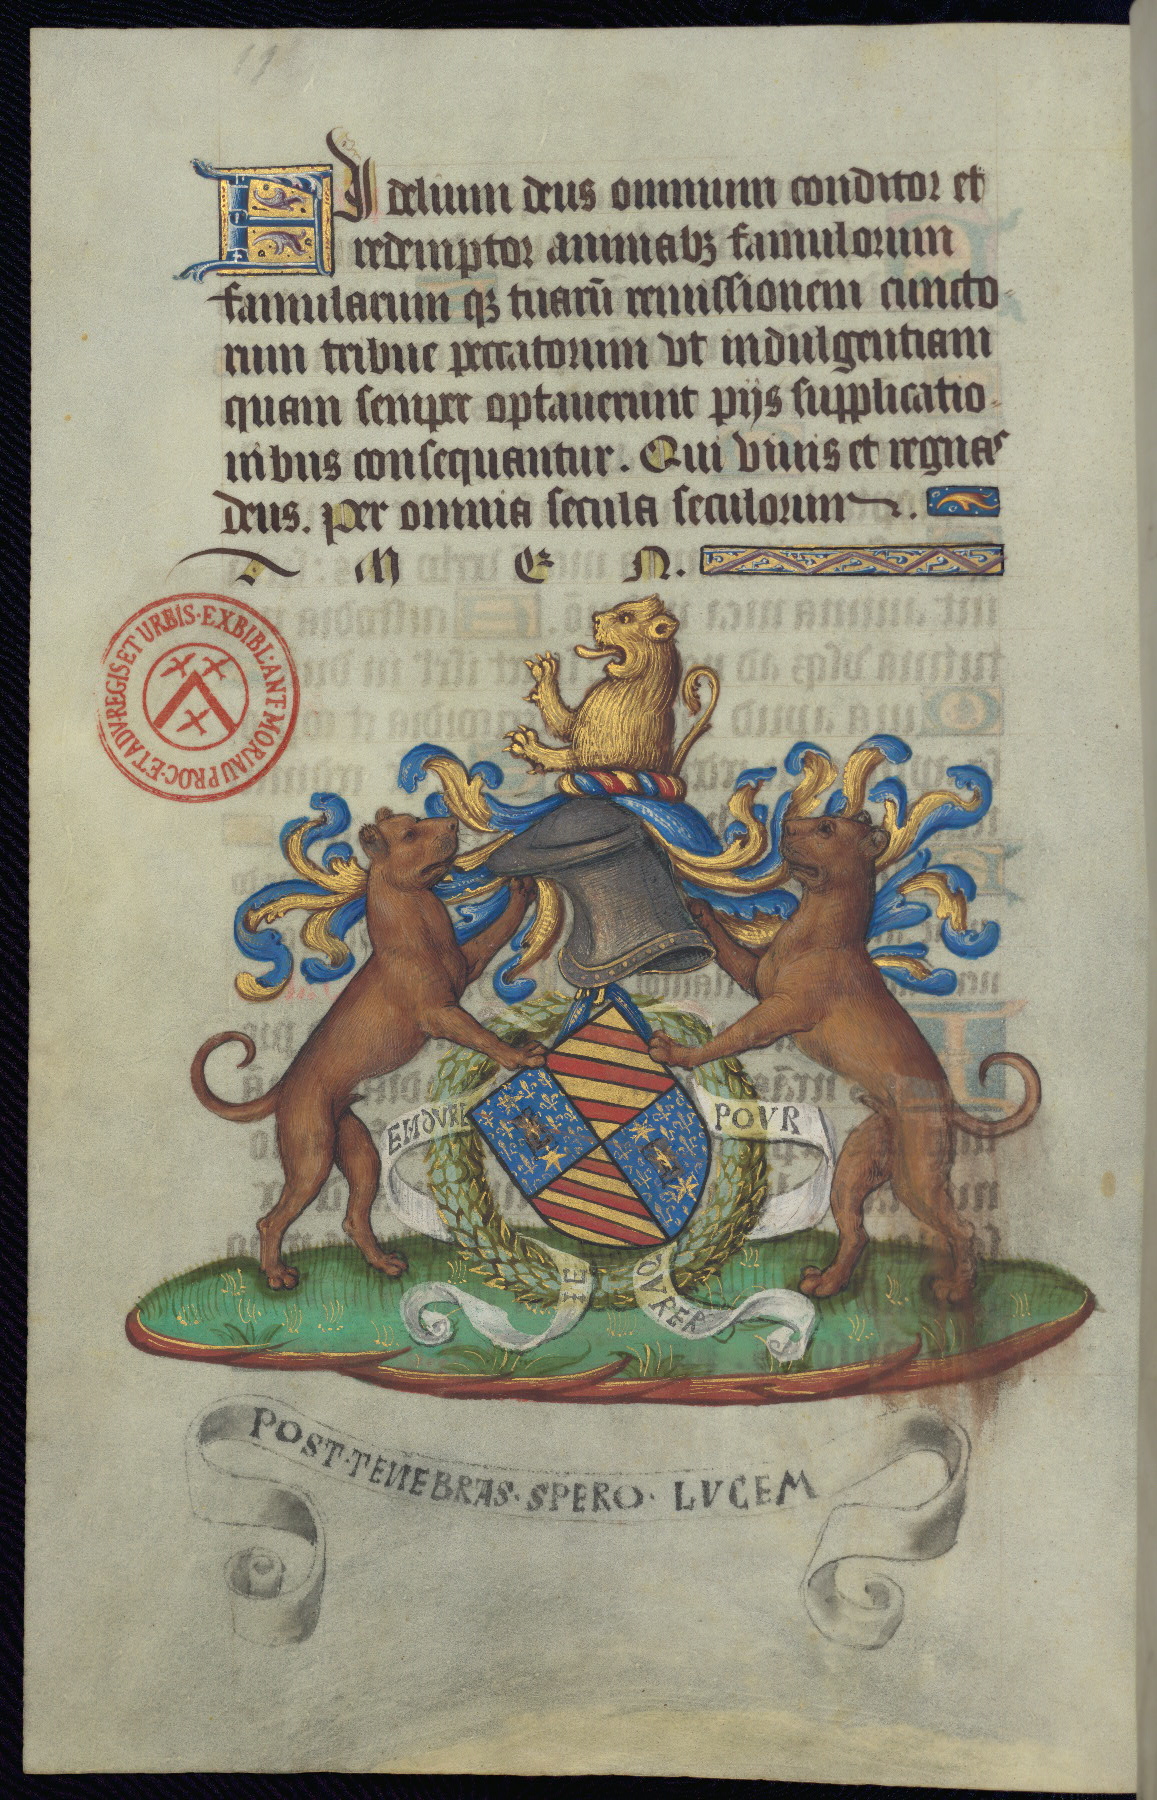 Fidelium deus omnium conditor et
redemptor animabꝫ famulorum
famularum qꝫ tuarū remissionem cuncto-
rum tribue peccatorum vt indulgentiam
quam semper optauerunt pijs supplicatio-
nibus consequantur. Qui viuis et regnas
deus. per omnia secula seculorum.
A M E N.
PROC·ET ADV·REGIS ET URBIS·EX BIBL·ANT MORIAU
ENDVRE
POVR
DVRER
POST·TENEBRAS·SPERO·LVCEM